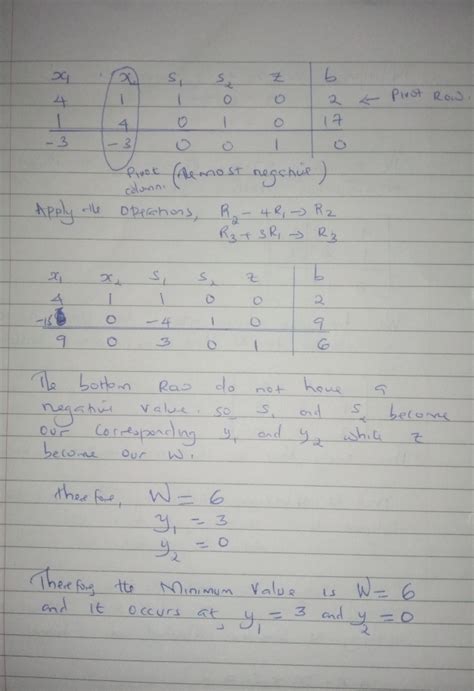 x₁ x₂ s₁ s₂ z b
4 1 1 0 0 2 ← Pivot Row.
1 4 0 1 0 17
-3 -3 0 0 1 0
Pivot column. (the most negative)
Apply the operations, R₂ - 4R₁ → R₂
R₃ + 3R₁ → R₃
x₁ x₂ s₁ s₂ z b
4 1 1 0 0 2
-15 0 -4 1 0 9
9 0 3 0 1 6
The bottom Row do not have a
negative value. so s₁ and s₂ become
our corresponding y₁ and y₂ while z
become our W.
therefore, W = 6
y₁ = 3
y₂ = 0
Therefore the Minimum Value is W = 6
and it occurs at, y₁ = 3 and y₂ = 0